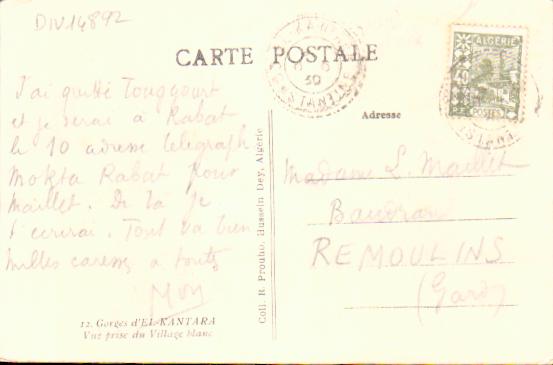 DIV14892
CARTE POSTALE
CONSTANTINE
ALGÉRIE
POSTES
J'ai quitté Touggourt
et je serai à Rabat
le 10 adresse telegraph
Mokta Rabat pour
Maillet. De là je
t'ecrirai. Tout va bien
milles caresses a toutes
12. Gorges d'EL-KANTARA
Vue prise du Village blanc
Coll. R. Prouho, Hussein Dey, Algérie
Adresse
Madame L. Maillet
REMOULINS
(Gard)